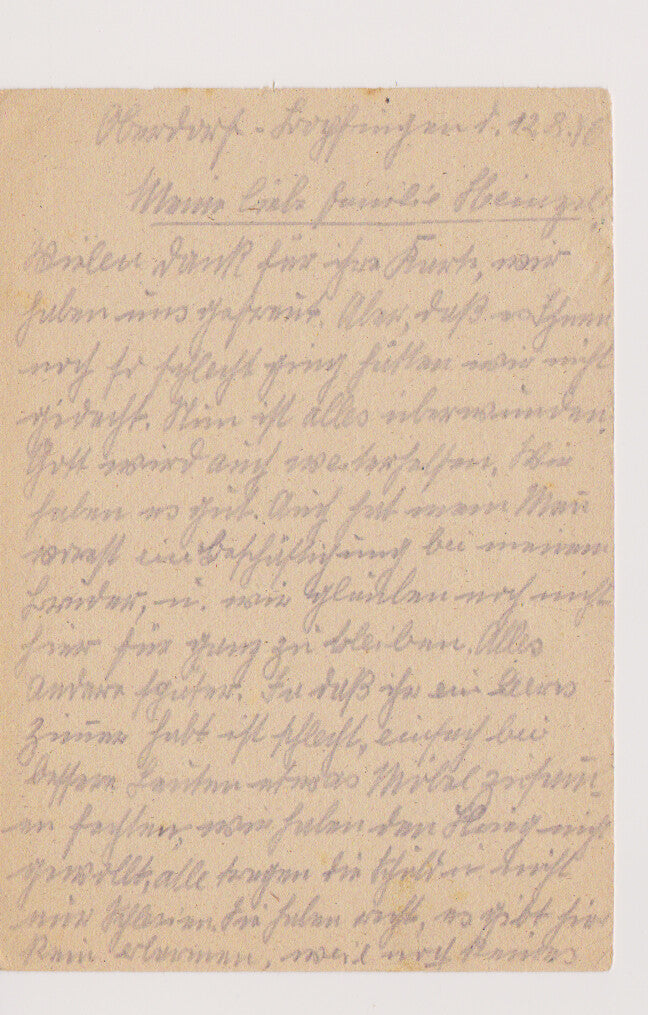 Oberdorf - Bopfingen d. 12.8.46
Meine liebe Familie Heinzel!
Vielen Dank für ihre Karte, wir
haben uns gefreut. Aber, daß es Ihnen
noch so schlecht ging hätten wir nicht
gedacht. Nun ist alles überwunden.
Gott wird auch weiterhelfen. Wir
haben es gut. Auch hat mein Mañ
vorerst ein Beschäftichung bei meinem
Bruder, u. wir glauben noch nicht
hier für ganz zu bleiben. Alles
Andere später. Ja daß ihr ein leeres
Zim̄er habt ist schlecht, einfach bei
bessere Leuten etwas Möbel zusam̄-
en fechten, wir haben den Krieg nicht
gewollt, alle tragen die Schuld u. nicht
nur Schlesien. Sie haben recht, es gibt hier
kein erbarmen, weil noch keines